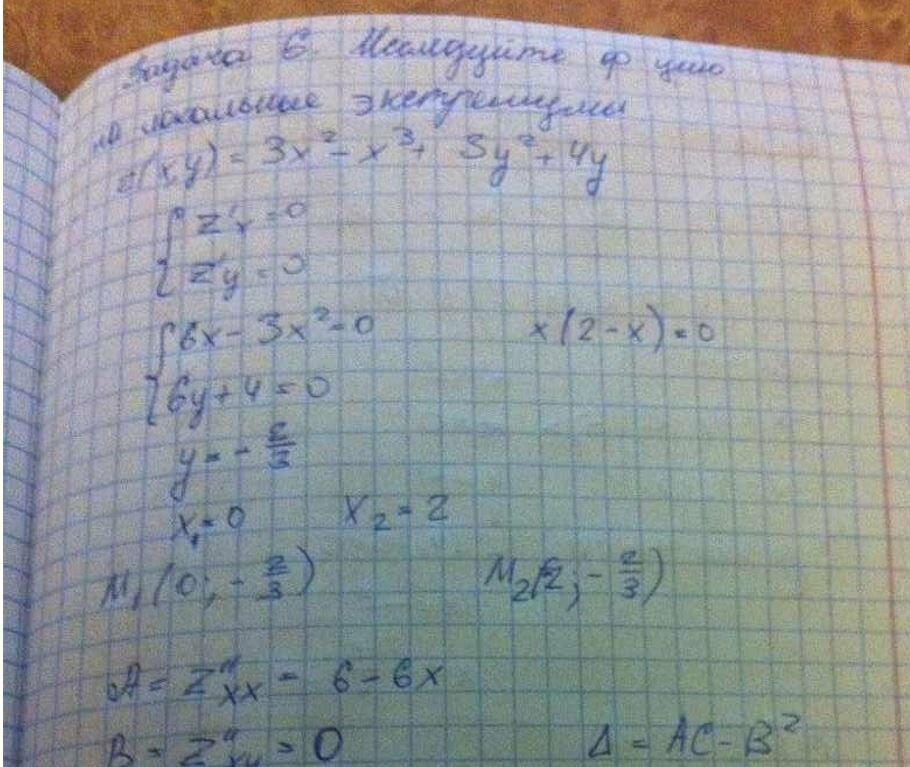 Задача 6. Исследуйте ф цию
на локальные экстремумы
z(x,y) = 3x² - x³ + 3y² + 4y
{ z'x = 0
{ z'y = 0
{ 6x - 3x² = 0    x(2-x) = 0
{ 6y + 4 = 0
y = - 2/3
x₁ = 0    x₂ = 2
M₁(0; - 2/3)    M₂(2; - 2/3)
A = z''xx = 6 - 6x
B = z''xy = 0    Δ = AC - B²